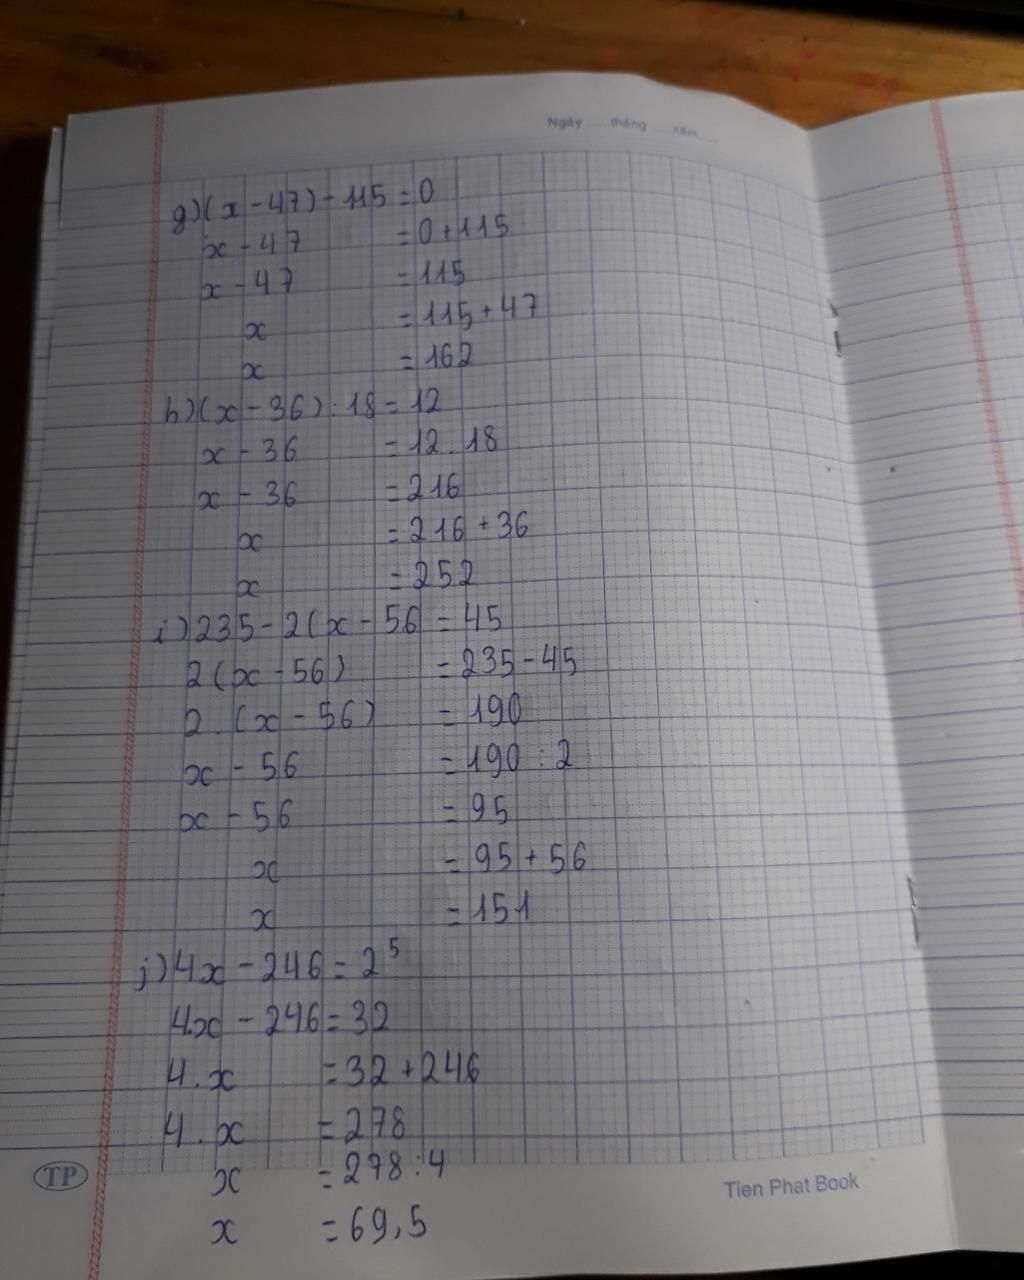 Ngày ..... tháng ..... năm .....
g) (x - 47) - 115 = 0
x - 47 = 0 + 115
x - 47 = 115
x = 115 + 47
x = 162
h) (x - 36) : 18 = 12
x - 36 = 12 . 18
x - 36 = 216
x = 216 + 36
x = 252
i) 235 - 2(x - 56 = 45
2(x - 56) = 235 - 45
2 . (x - 56) = 190
x - 56 = 190 : 2
x - 56 = 95
x = 95 + 56
x = 151
j) 4x - 246 = 2⁵
4.x - 246 = 32
4 . x = 32 + 246
4 . x = 278
x = 278 : 4
x = 69,5
TP
Tien Phat Book